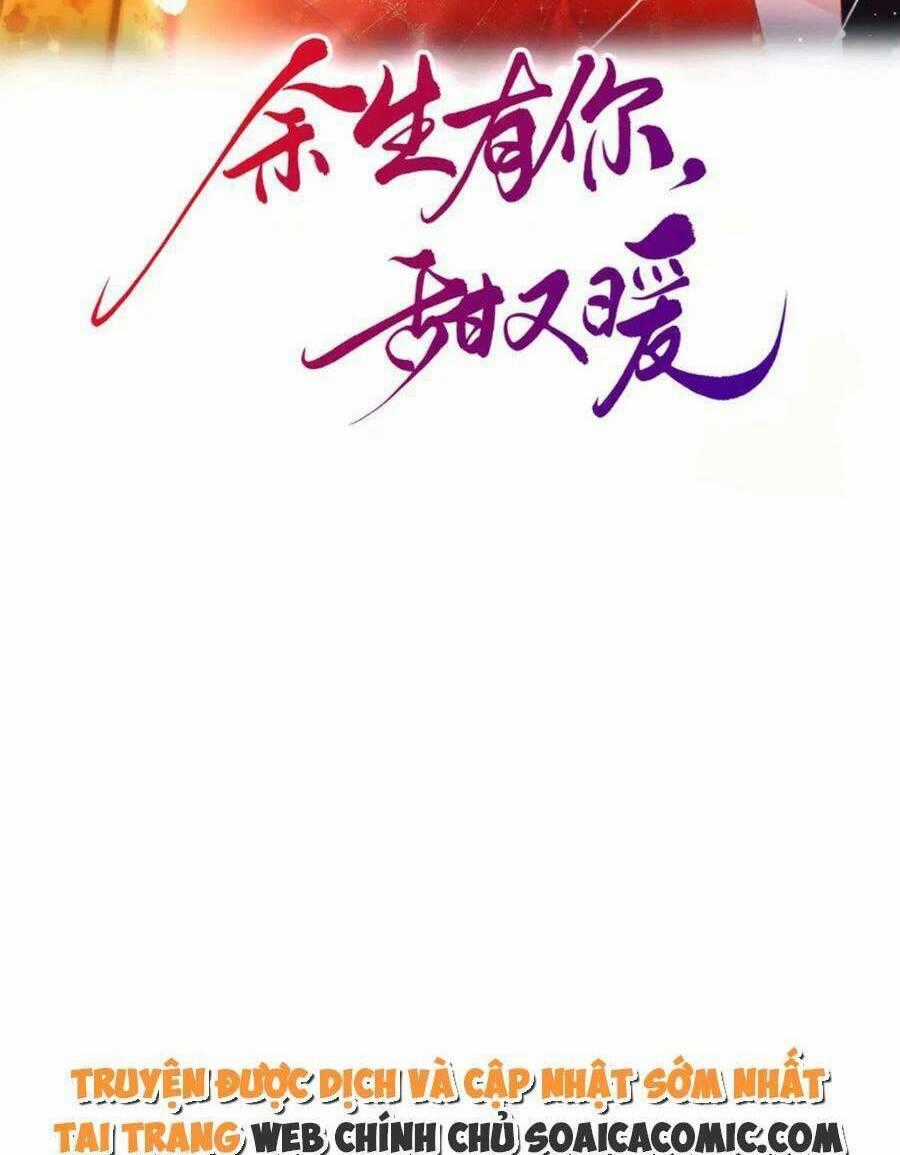 余生有你,
甜又暖
TRUYỆN ĐƯỢC DỊCH VÀ CẬP NHẬT SỚM NHẤT
TẠI TRANG WEB CHÍNH CHỦ SOAICACOMIC.COM